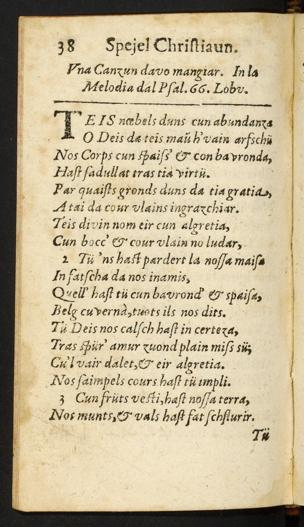 38 Spejel Christiaun.
Vna Canzun davo mangiar. In la
Melodia dal Psal. 66. Lobv.
TEIS nœbels duns cun abundanza
O Deis da teis maũ h'vain arfschũ
Nos Corps cun spaisſ' & con bavronda,
Haſt ſadullat tras tia virtü.
Par quaiſts gronds duns da tia gratia,
A tai da cour vlains ingrazchiar.
Teis divin nom eir cun algretia,
Cun bocc' & cour vlain no ludar,
2 Tü 'ns haſt pardert la noſſa maiſa
In fatſcha da nos inamis,
Quell' haſt tü cun bavrond' & ſpaiſa,
Belg cuvernà, tuots ils nos dits.
Tü Deis nos calſch haſt in certeza,
Tras ſpür' amur zuond plain miſſ sü;
Cu'l vair dalet, & eir algretia.
Nos ſaimpels cours haſt tü impli.
3 Cun früts veſti, haſt noſſa terra,
Nos munts, & vals haſt fat ſchſlurir.
Tü